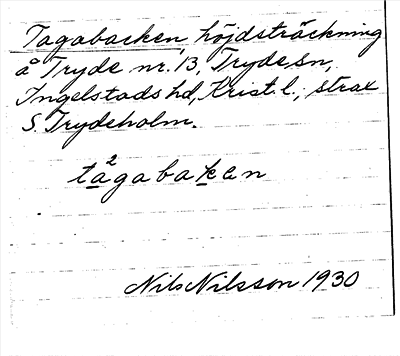 Tagabacken, höjdsträckning
å Tryde nr. 13, Tryde sn,
Ingelstads hd, Krist. l., strax
S. Trydeholm.
ta²gabaken
Nils Nilsson 1930